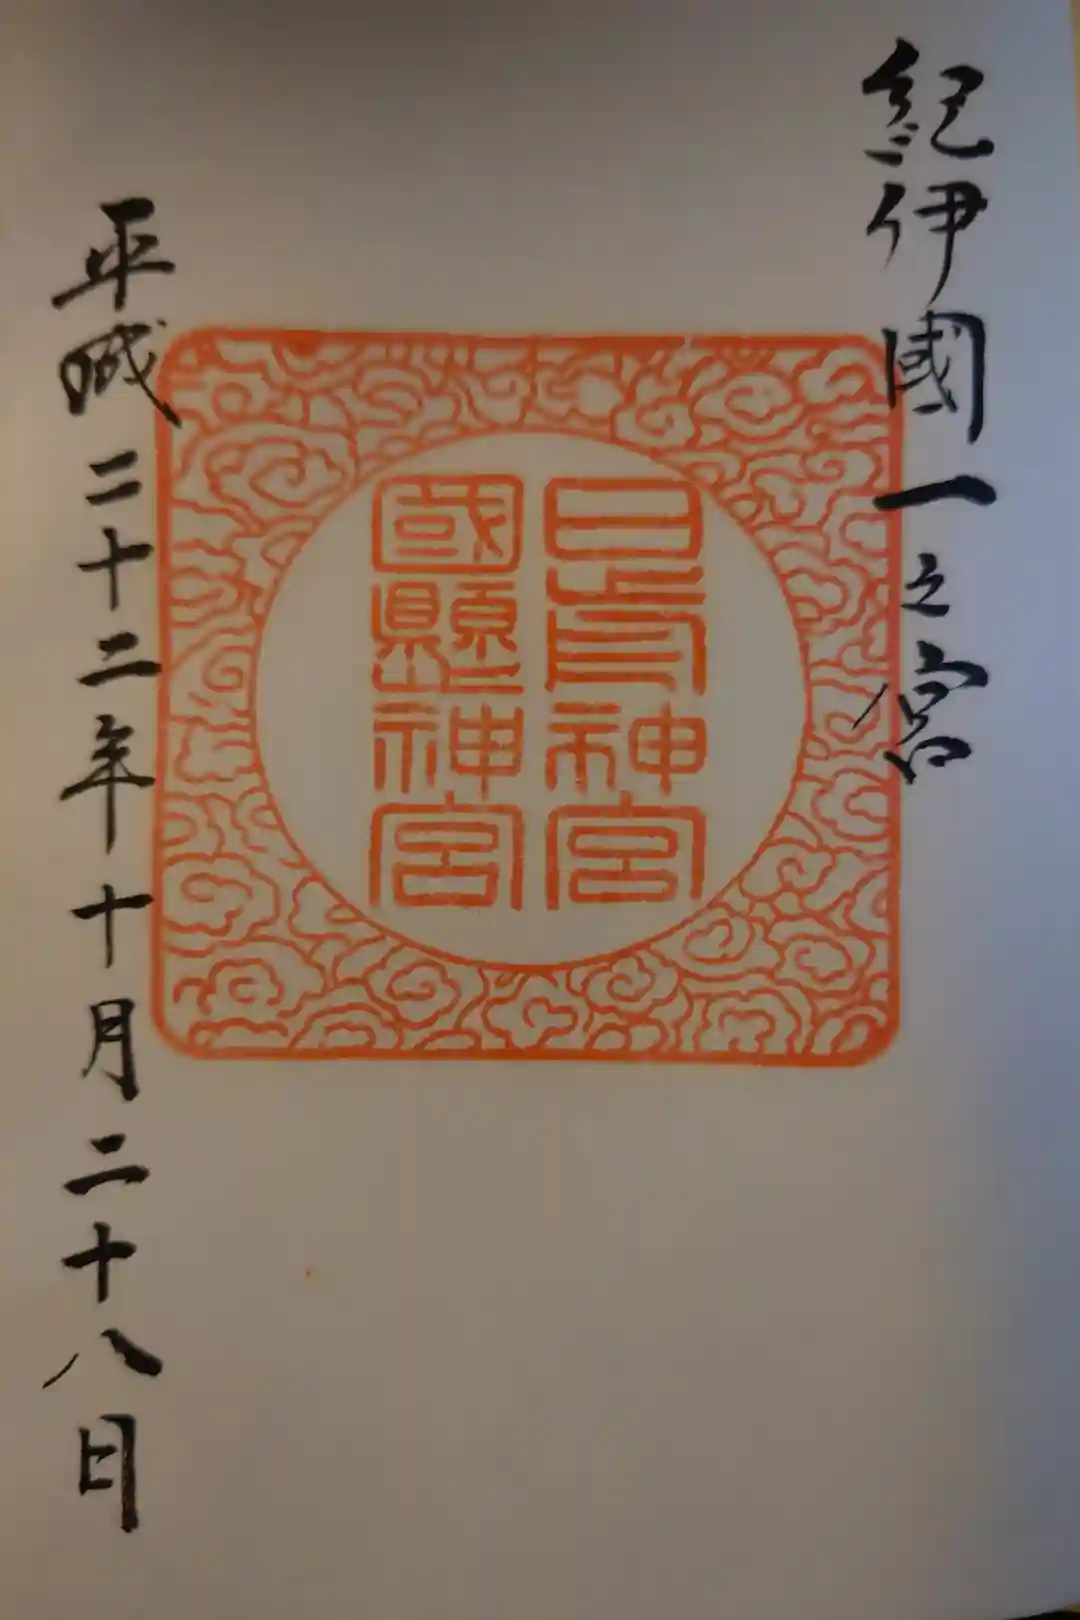 紀伊國一之宮
日前神宮
國懸神宮
平成二十二年十月二十八日